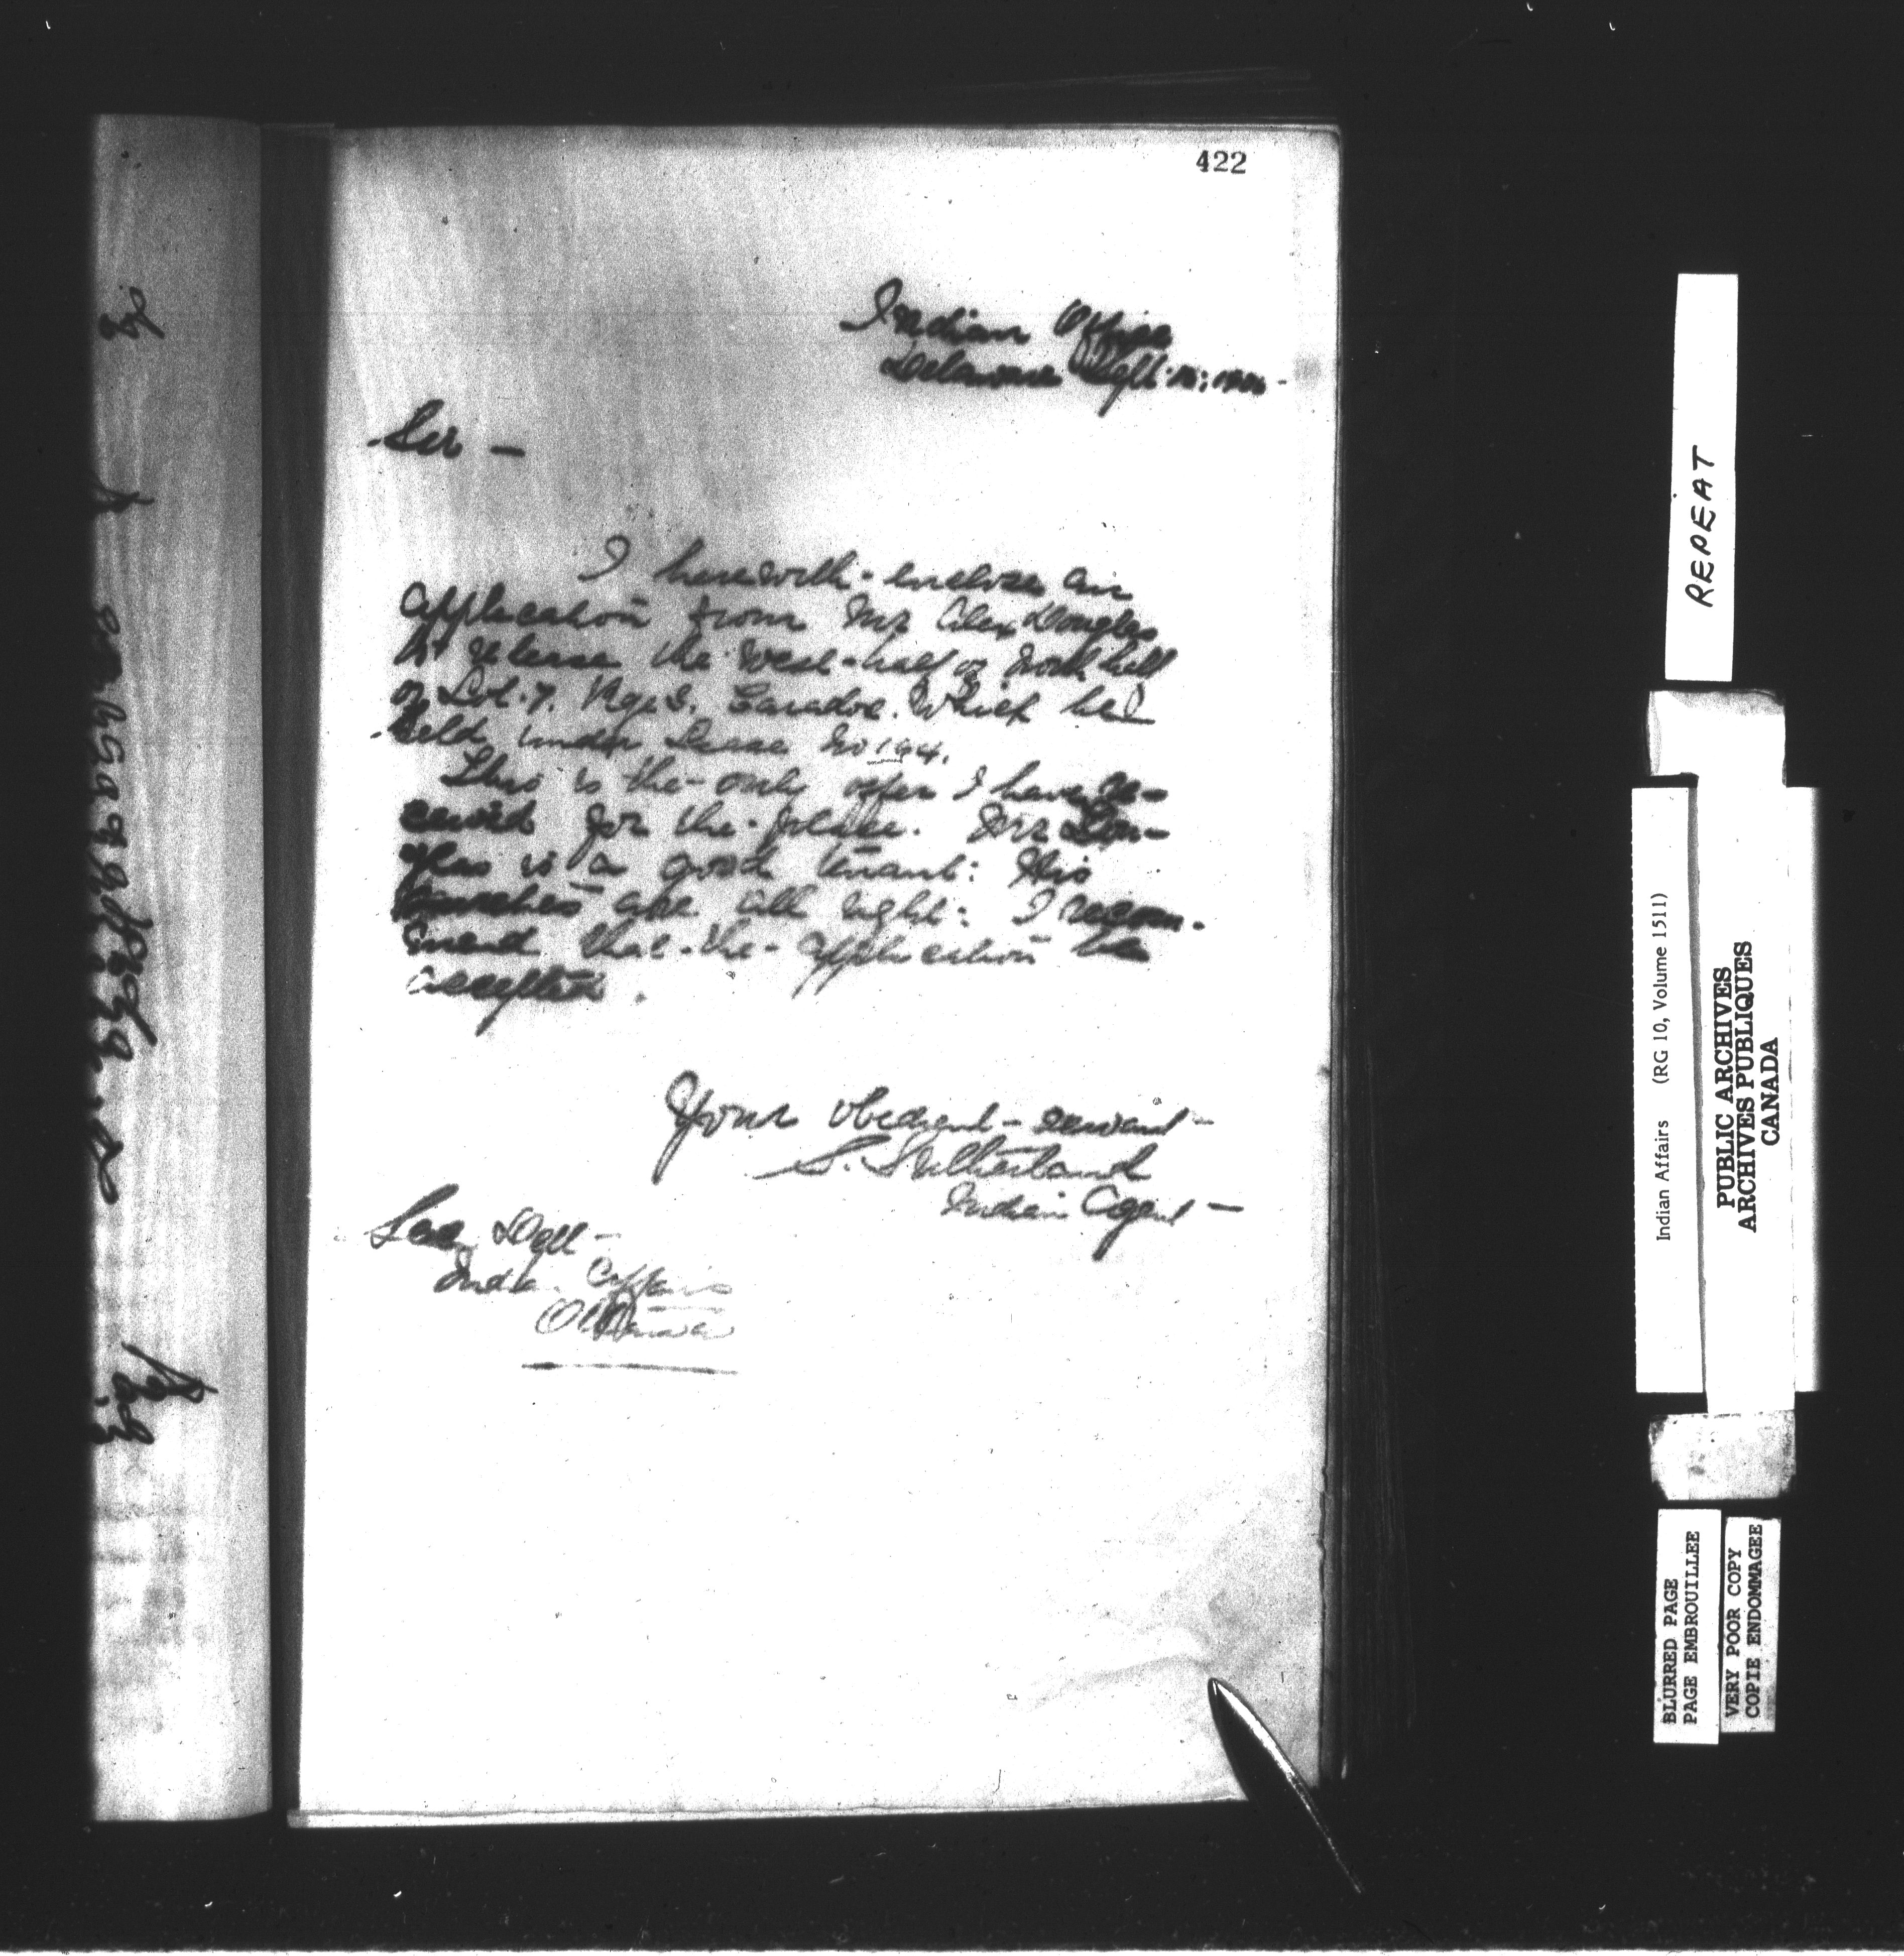 422
Indian Office
Delaware Sept.
Sir —
I herewith enclose an
application from Mr Alex Douglas
to release the West-half of North half
of Lot. 7. Rge 3. Caradoc. Which he
held under Lease No 194.
This is the only offer I have re-
ceived for the place. Mr Dou-
glas is a good tenant: His
are all right: I recom-
mend that the application be
accepted.
Your obedient servant
S. Sutherland
Indian Agent —
Sec, Dept
India. Affairs
Ottawa
REPEAT
Indian Affairs (RG 10, Volume 1511)
PUBLIC ARCHIVES
ARCHIVES PUBLIQUES
CANADA
BLURRED PAGE
PAGE EMBROUILLEE
VERY POOR COPY
COPIE ENDOMMAGEE